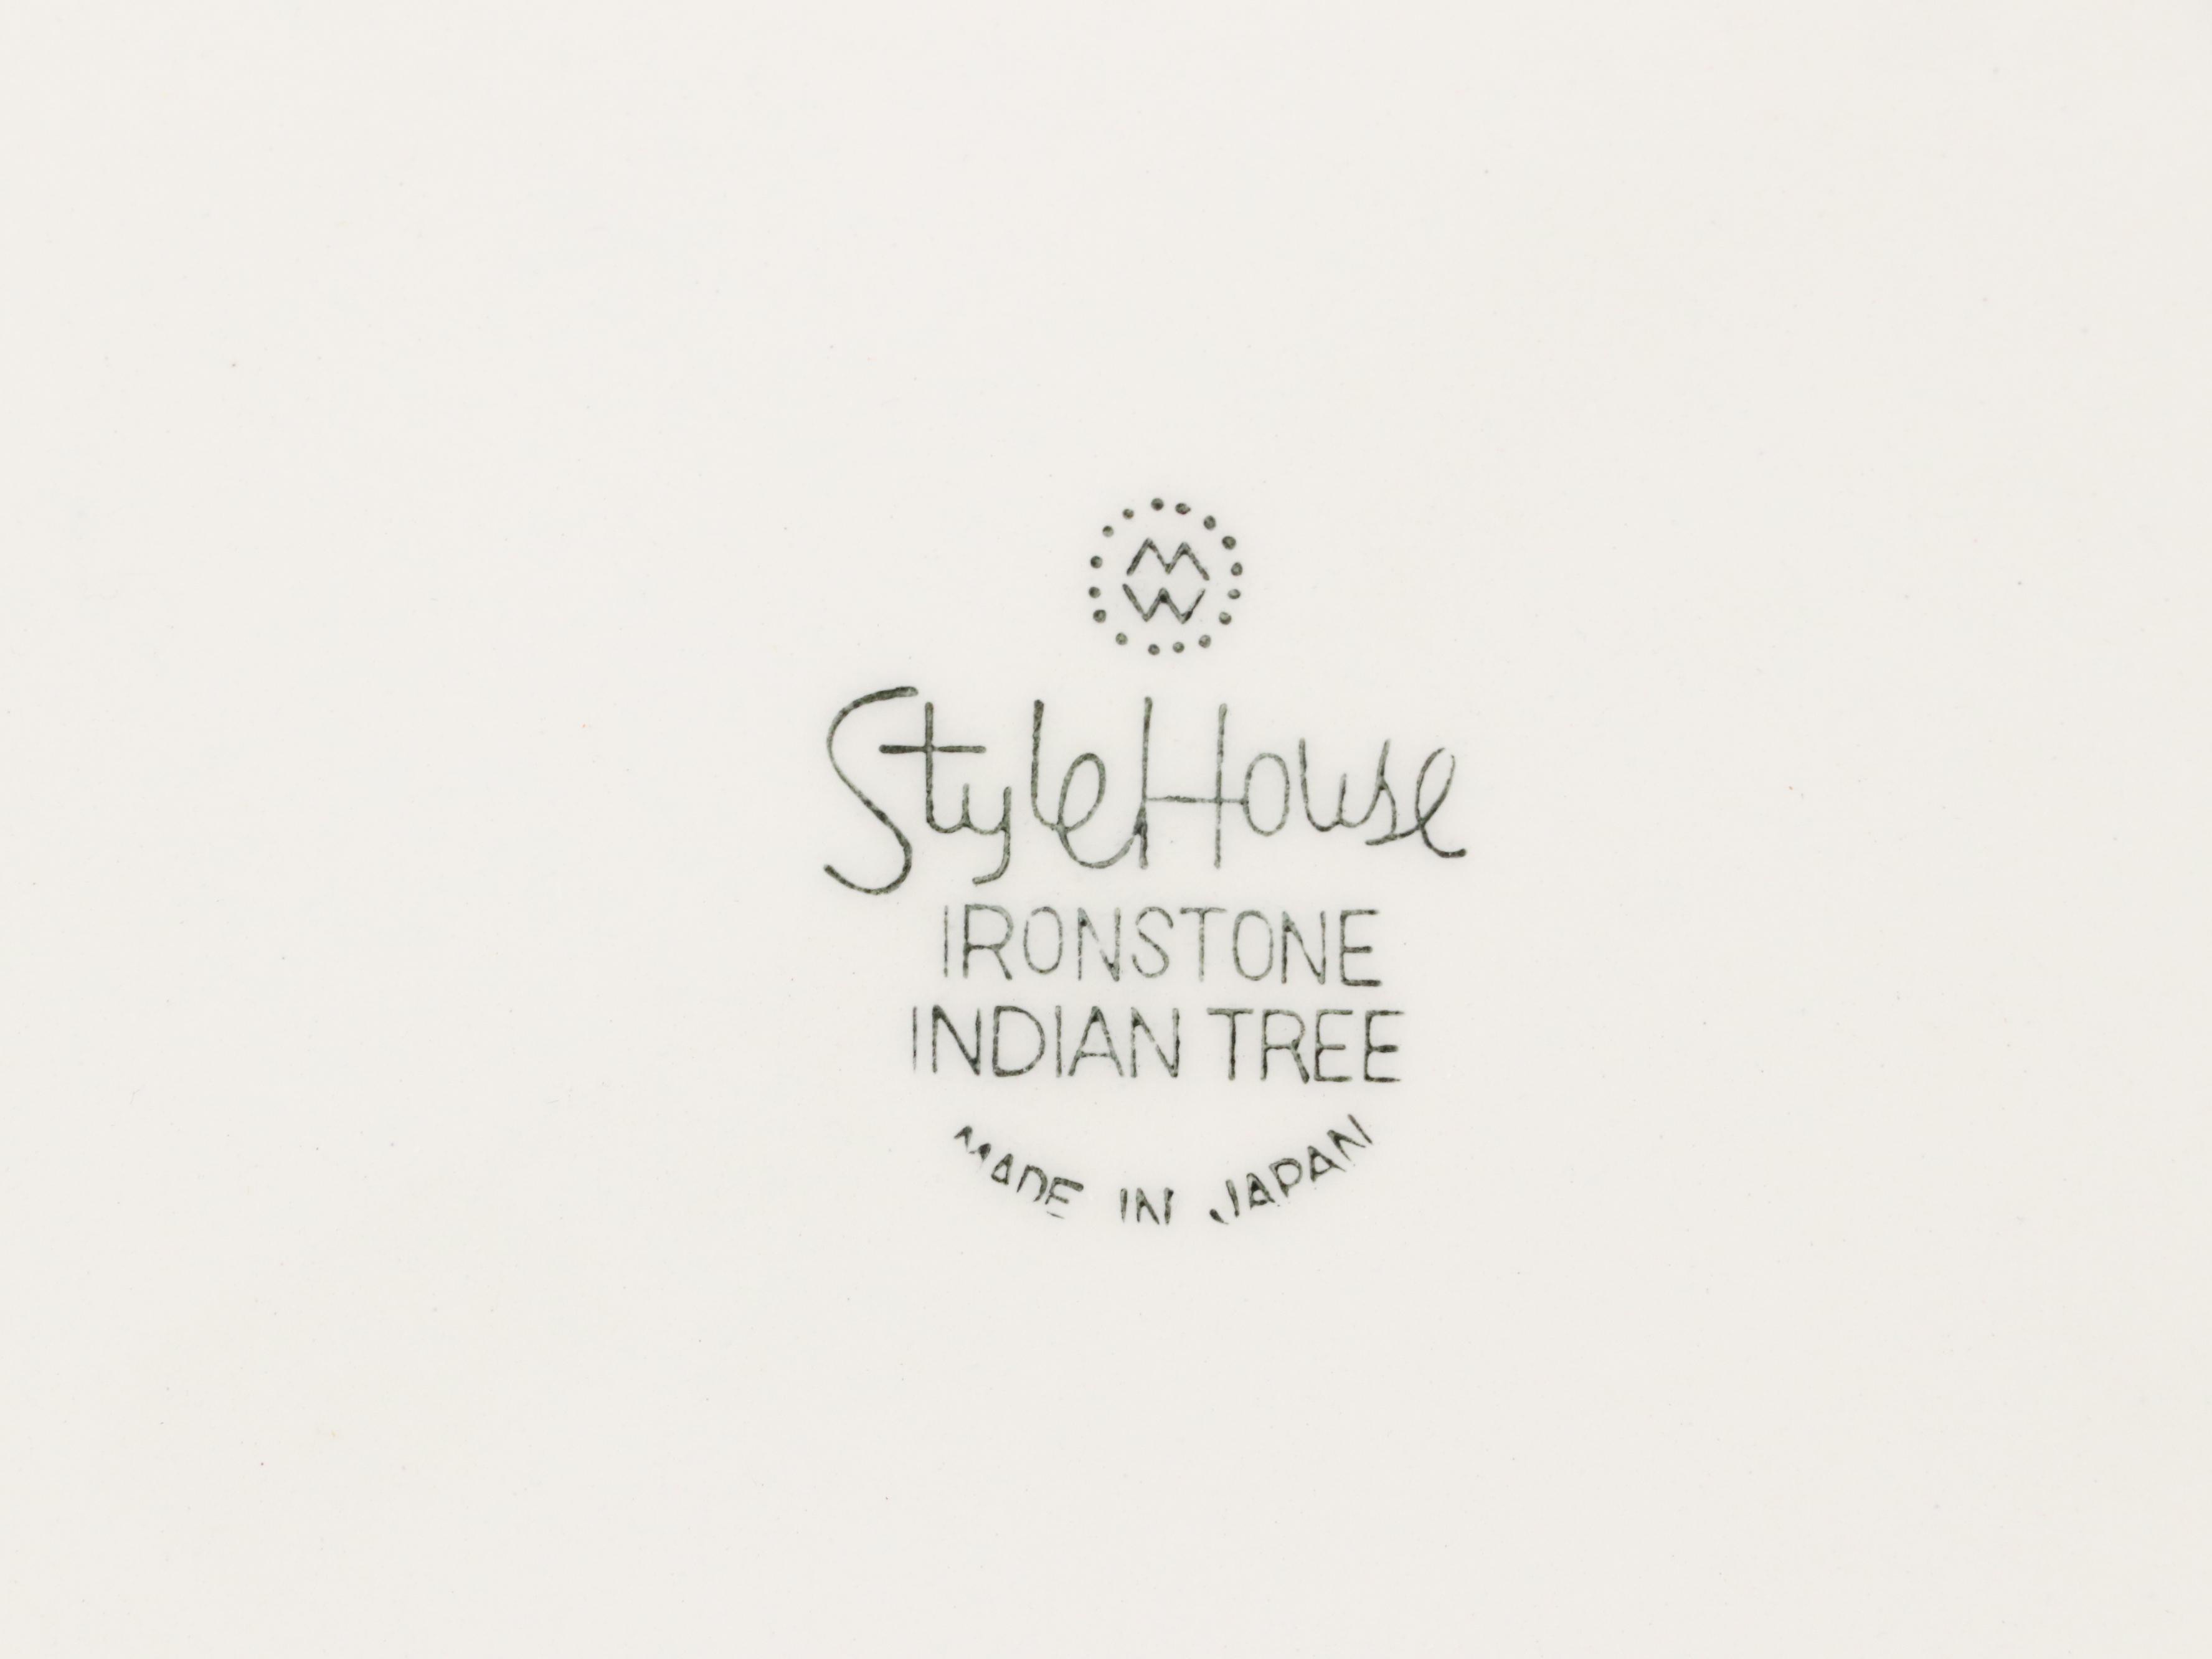 M
W
Style House
IRONSTONE
INDIAN TREE
MADE IN JAPAN